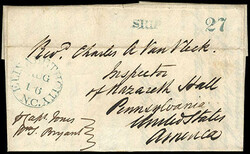 SHIP 27
Revd. Charles A Van Vleck
Inspector
of Nazareth Hall
Pennsylvania
United States
America
AUG
16
N.C.
pr Capt Jones
Bryant